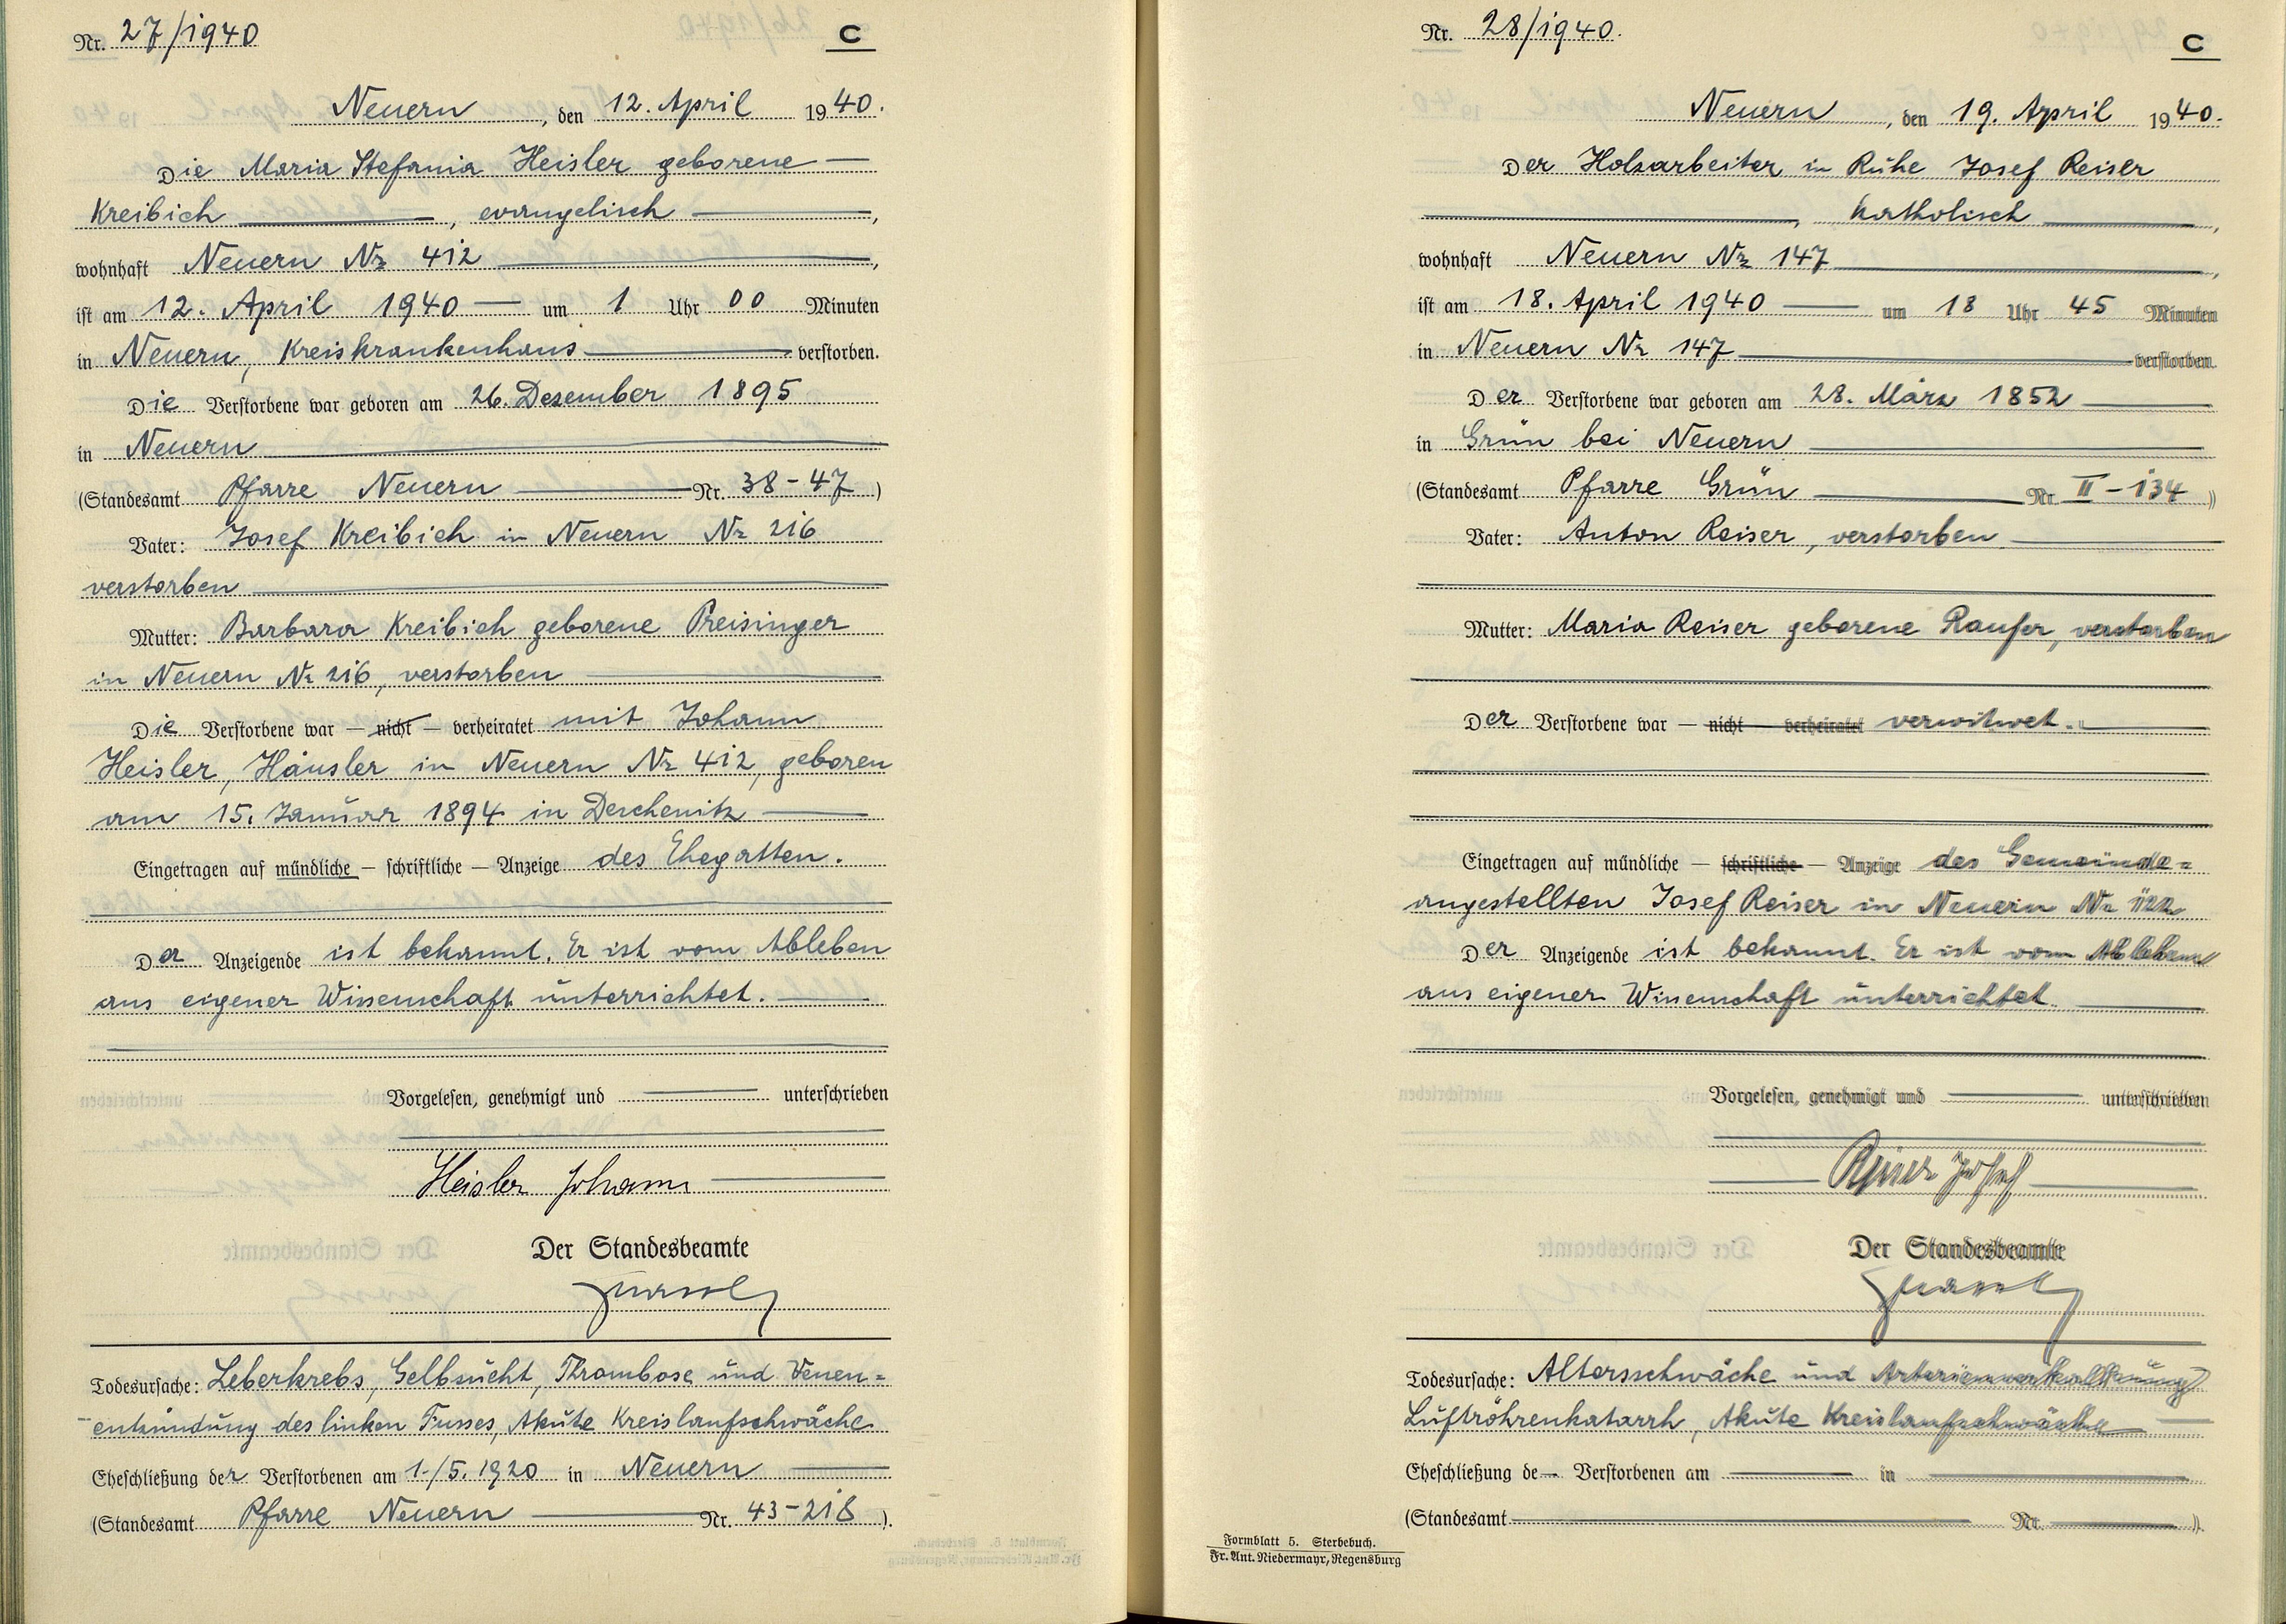 Nr. 27/1940
C
Neuern, den 12. April 1940.
Die Maria Stefania Heisler geborene
Kreibich, evangelisch,
wohnhaft Neuern Nr 412,
ist am 12. April 1940 um 1 Uhr 00 Minuten
in Neuern, Kreiskrankenhaus verstorben.
Die Verstorbene war geboren am 26. Dezember 1895
in Neuern
(Standesamt Pfarre Neuern Nr. 38-47)
Vater: Josef Kreibich in Neuern Nr 216
verstorben
Mutter: Barbara Kreibich geborene Preisinger
in Neuern Nr 216, verstorben
Die Verstorbene war — nicht — verheiratet mit Johann
Heisler, Häusler in Neuern Nr 412, geboren
am 15. Januar 1894 in Deschenitz
Eingetragen auf mündliche — schriftliche — Anzeige des Ehegatten.
Der Anzeigende ist bekannt. Er ist vom Ableben
aus eigener Wissenschaft unterrichtet.
Vorgelesen, genehmigt und unterschrieben
Heisler Johann
Der Standesbeamte
Todesursache: Leberkrebs, Gelbsucht, Thrombose und Venen=
entzündung des linken Fusses, Akute Kreislaufschwäche
Eheschließung der Verstorbenen am 1./5. 1920 in Neuern
(Standesamt Pfarre Neuern Nr. 43-218).
Nr. 28/1940.
C
Neuern, den 19. April 1940.
Der Holzarbeiter in Ruhe Josef Reiser
, katholisch,
wohnhaft Neuern Nr 147,
ist am 18. April 1940 um 18 Uhr 45 Minuten
in Neuern Nr 147 verstorben.
Der Verstorbene war geboren am 28. März 1852
in Grün bei Neuern
(Standesamt Pfarre Grün Nr. II-134)
Vater: Anton Reiser, verstorben
Mutter: Maria Reiser geborene Raufer, verstorben
Der Verstorbene war — nicht — verheiratet verwitwet.
Eingetragen auf mündliche — schriftliche — Anzeige des Gemeinde=
angestellten Josef Reiser in Neuern Nr
Der Anzeigende ist bekannt. Er ist vom Ableben
aus eigener Wissenschaft unterrichtet.
Vorgelesen, genehmigt und unterschrieben
Reiser Josef
Der Standesbeamte
Todesursache: Altersschwäche und Arterienverkalkung
Luftröhrenkatarrh, Akute Kreislaufschwäche
Eheschließung de Verstorbenen am in
(Standesamt Nr. ).
Formblatt 5. Sterbebuch.
Fr. Ant. Niedermayr, Regensburg